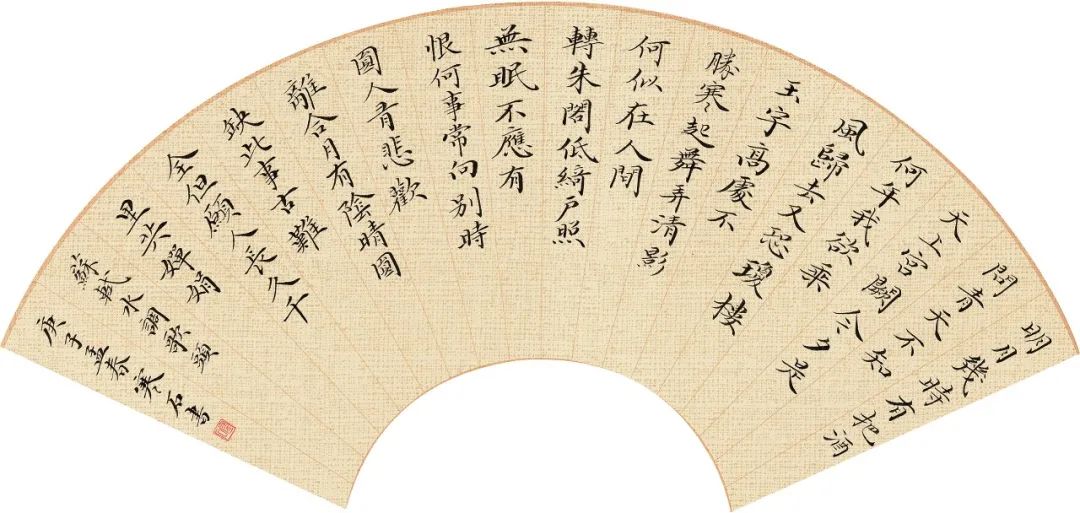 明月幾時有把酒
問青天不知
天上宮闕今夕是
何年我欲乘
風歸去又恐瓊樓
玉宇高處不
勝寒起舞弄清影
何似在人間
轉朱閣低綺戶照
無眠不應有
恨何事常向別時
圓人有悲歡
離合月有陰晴圓
缺此事古難
全但願人長久千
里共嬋娟
蘇軾水調歌頭
庚子孟春寒石書